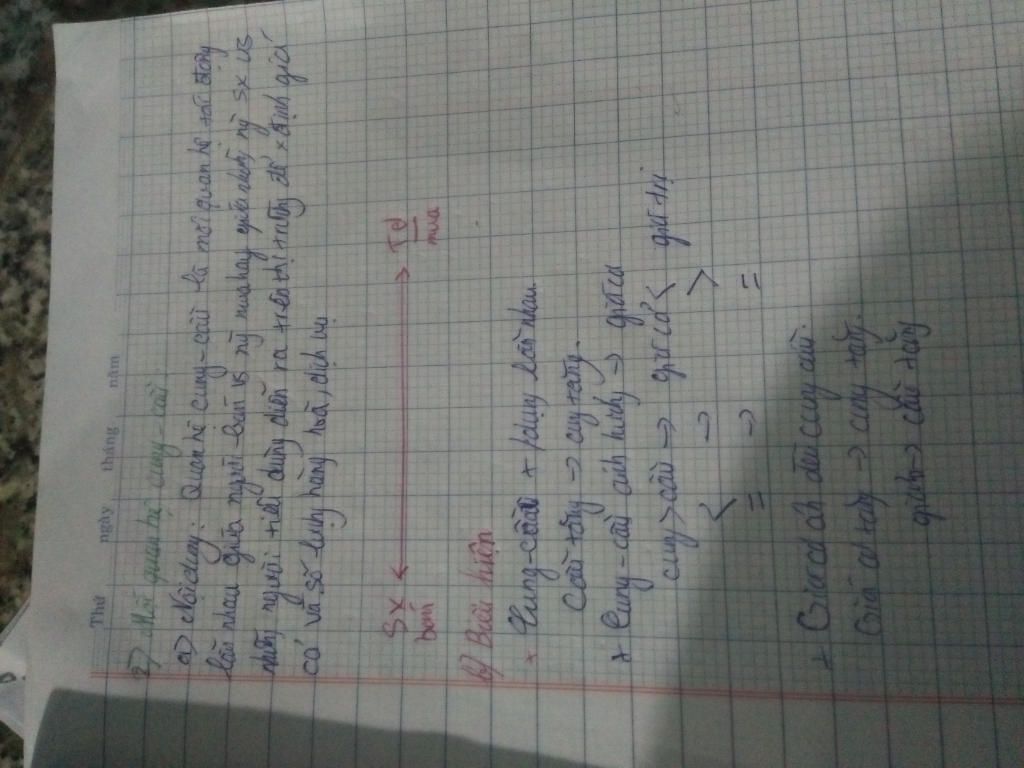 Thứ ngày tháng năm
2) Mối quan hệ cung - cầu
a) Nội dung: Quan hệ cung - cầu là mối quan hệ tác động
lẫn nhau giữa người bán vs ng mua hay giữa những ng sx vs
những người tiêu dùng diễn ra trên thị trường để xđịnh giá
cả và số lượng hàng hoá, dịch vụ.
SX ⟷ TD
bán mua
b) Biểu hiện
+ Cung - cầu tđụng lẫn nhau.
Cầu tăng → cung tăng.
+ Cung - cầu ảnh hưởng → giá cả
cung > cầu → giá cả < giá trị
< → >
= → =
+ Giá cả ảh đến cung cầu.
Giá cả tăng → cung tăng.
giảm → cầu tăng